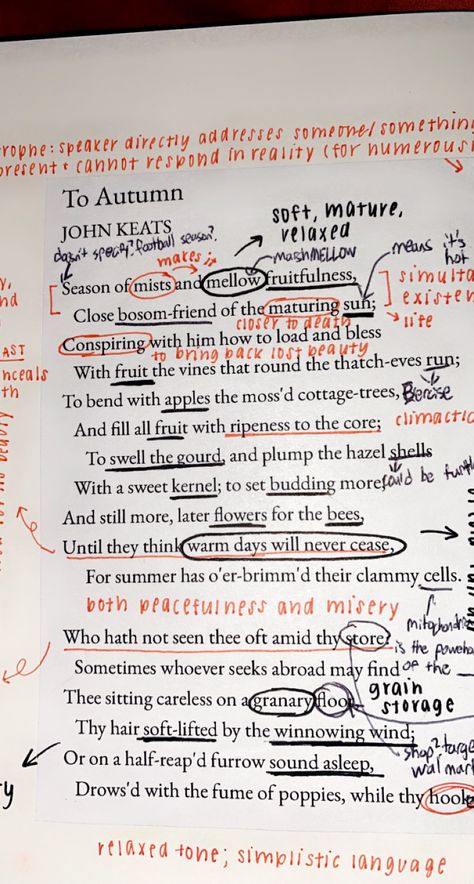 trophe: speaker directly addresses someone/something
present + cannot respond in reality (for numerous
To Autumn
JOHN KEATS
doesn't specify? football season?
soft, mature,
relaxed
makes it
marshMELLOW
means it's
hot
Season of mists and mellow fruitfulness,
simulta
existen
life
Close bosom-friend of the maturing sun;
closer to death
Conspiring with him how to load and bless
to bring back lost beauty
AST
nceals
th
With fruit the vines that round the thatch-eves run;
To bend with apples the moss'd cottage-trees,
And fill all fruit with ripeness to the core;
climactic
To swell the gourd, and plump the hazel shells
With a sweet kernel; to set budding more,
could be turtle
And still more, later flowers for the bees,
Until they think warm days will never cease,
For summer has o'er-brimm'd their clammy cells.
both peacefulness and misery
mitochondri
is the powerho
of the
Who hath not seen thee oft amid thy store?
Sometimes whoever seeks abroad may find
Thee sitting careless on a granary floor,
grain
storage
Thy hair soft-lifted by the winnowing wind;
shop? targe
walmart
Or on a half-reap'd furrow sound asleep,
Drows'd with the fume of poppies, while thy hook
relaxed tone; simplistic language